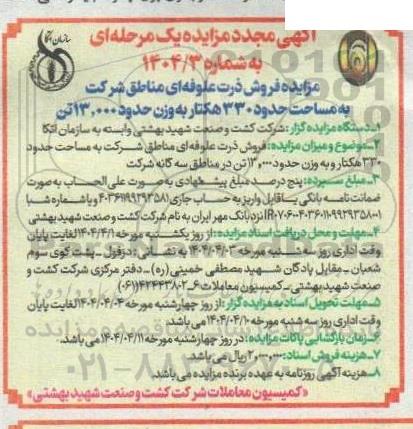 سازمان اتکا
آگهی مجدد مزایده یک مرحله‌ای
به شماره ۱۴۰۴/۳
مزایده فروش ذرت علوفه‌ای مناطق شرکت
به مساحت حدود ۳۳۰ هکتار به وزن حدود ۱۳,۰۰۰ تن
۱_دستگاه مزایده گزار: شرکت کشت و صنعت شهید بهشتی وابسته به سازمان اتکا
۲_موضوع و میزان مزایده: فروش ذرت علوفه‌ای مناطق شرکت به مساحت حدود
۳۳۰ هکتار و به وزن حدود ۱۳,۰۰۰ تن در مناطق سه گانه شرکت
۳_مبلغ سپرده: پنج درصد مبلغ پیشنهادی به صورت علی الحساب به صورت
ضمانت نامه بانکی یا قابل واریز به حساب جاری و یا شماره شبا
نزد بانک مهر ایران به نام شرکت کشت و صنعت شهید بهشتی
۴_مهلت و محل دریافت اسناد مزایده: از روز یکشنبه مورخه ۱۴۰۴/۴/۱ لغایت پایان
وقت اداری روز سه شنبه مورخه ۱۴۰۴/۰۴/۰۳ به نشانی: دزفول _ پشت کوی سوم
شعبان _ مقابل پادگان شهید مصطفی خمینی (ره) _ دفتر مرکزی شرکت کشت و
صنعت شهید بهشتی _ کمیسیون معاملات
۵_مهلت تحویل اسناد به مزایده گزار: از روز چهارشنبه مورخه ۱۴۰۴/۰۴/۰۴ لغایت پایان
وقت اداری روز سه شنبه مورخه ۱۴۰۴/۰۴/۱۰ می‌باشد.
۶_زمان بازگشایی پاکات مزایده: در روز چهارشنبه مورخه ۱۴۰۴/۰۴/۱۱ می‌باشد.
۷_هزینه فروش اسناد: ۲,۰۰۰,۰۰۰ ریال می باشد.
۸_هزینه آگهی روزنامه به عهده برنده مزایده می باشد.
«کمیسیون معاملات شرکت کشت و صنعت شهید بهشتی»